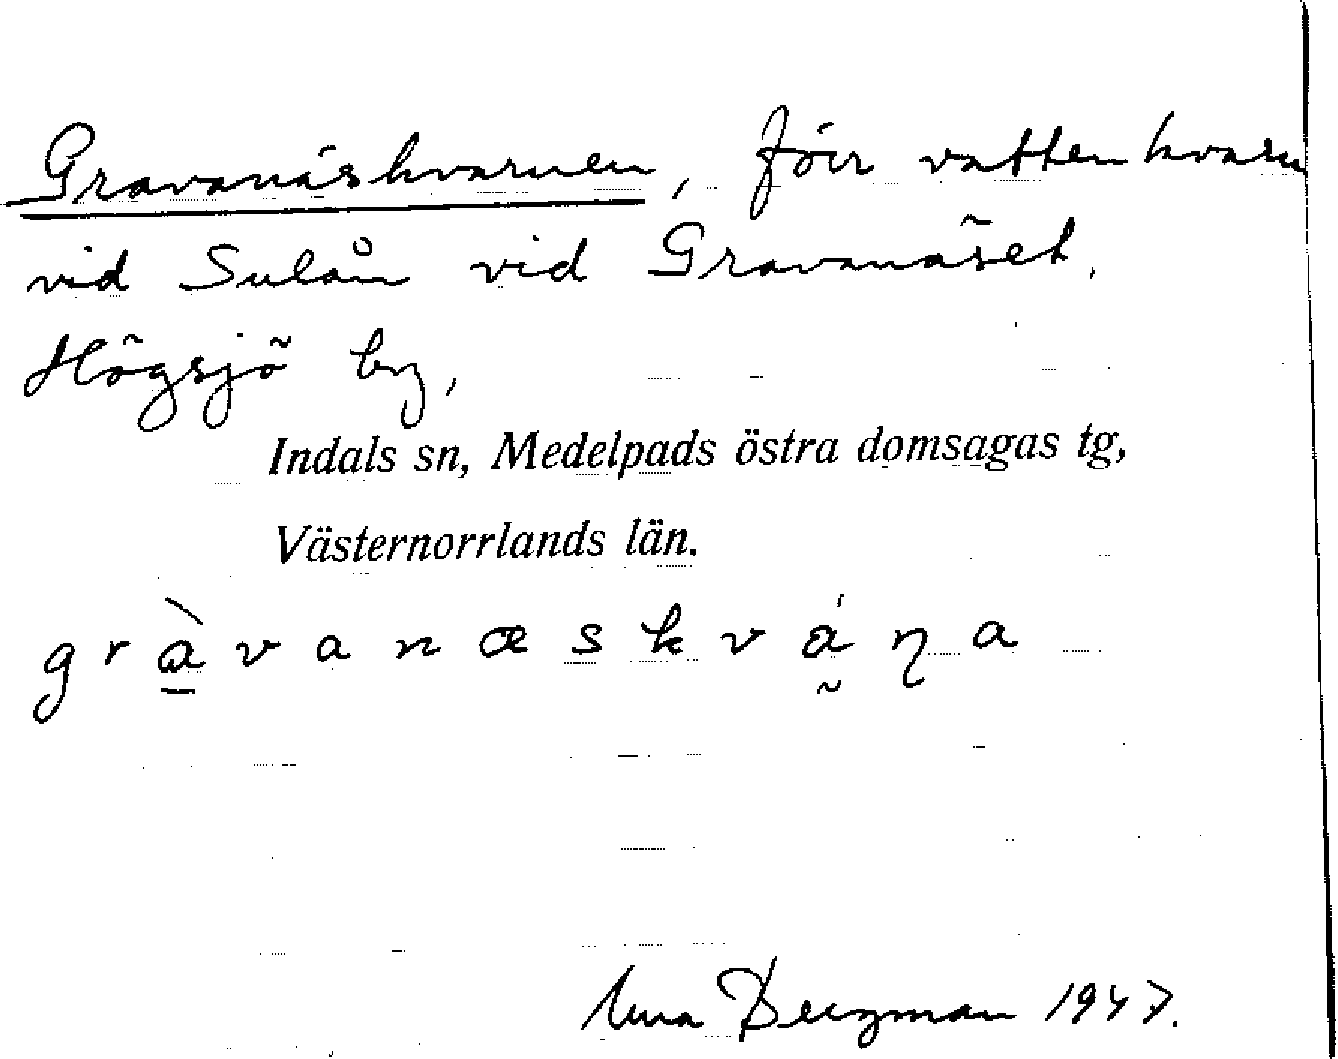 Gravanäskvarnen, förr vattenkvarn
vid Sulån vid Gravanäset,
Högsjö by,
Indals sn, Medelpads östra domsagas tg,
Västernorrlands län.
gràvanæskváɳa
Bergman 1947.